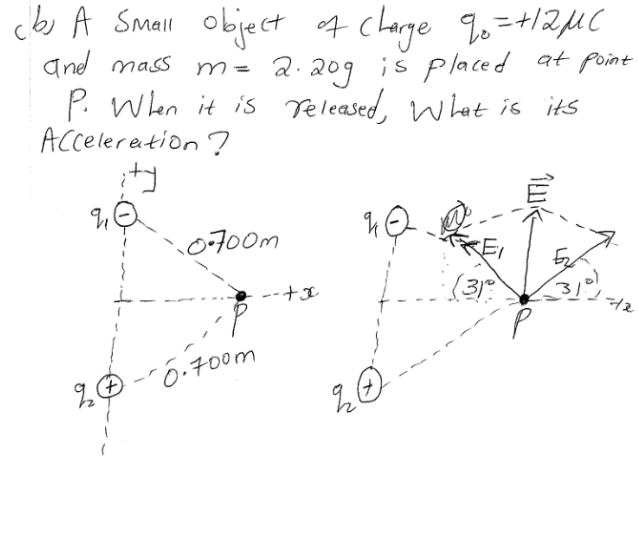 (b) A Small object of charge q₀=+12μC
and mass m= 2.20g is placed at point
P. When it is released, What is its
Acceleration?
+y
q₁
−
0.700m
+x
P
0.700m
q₂
+
E⃗
q₁
−
E₁
E₂
(31°
31°)
+x
P
q₂
+